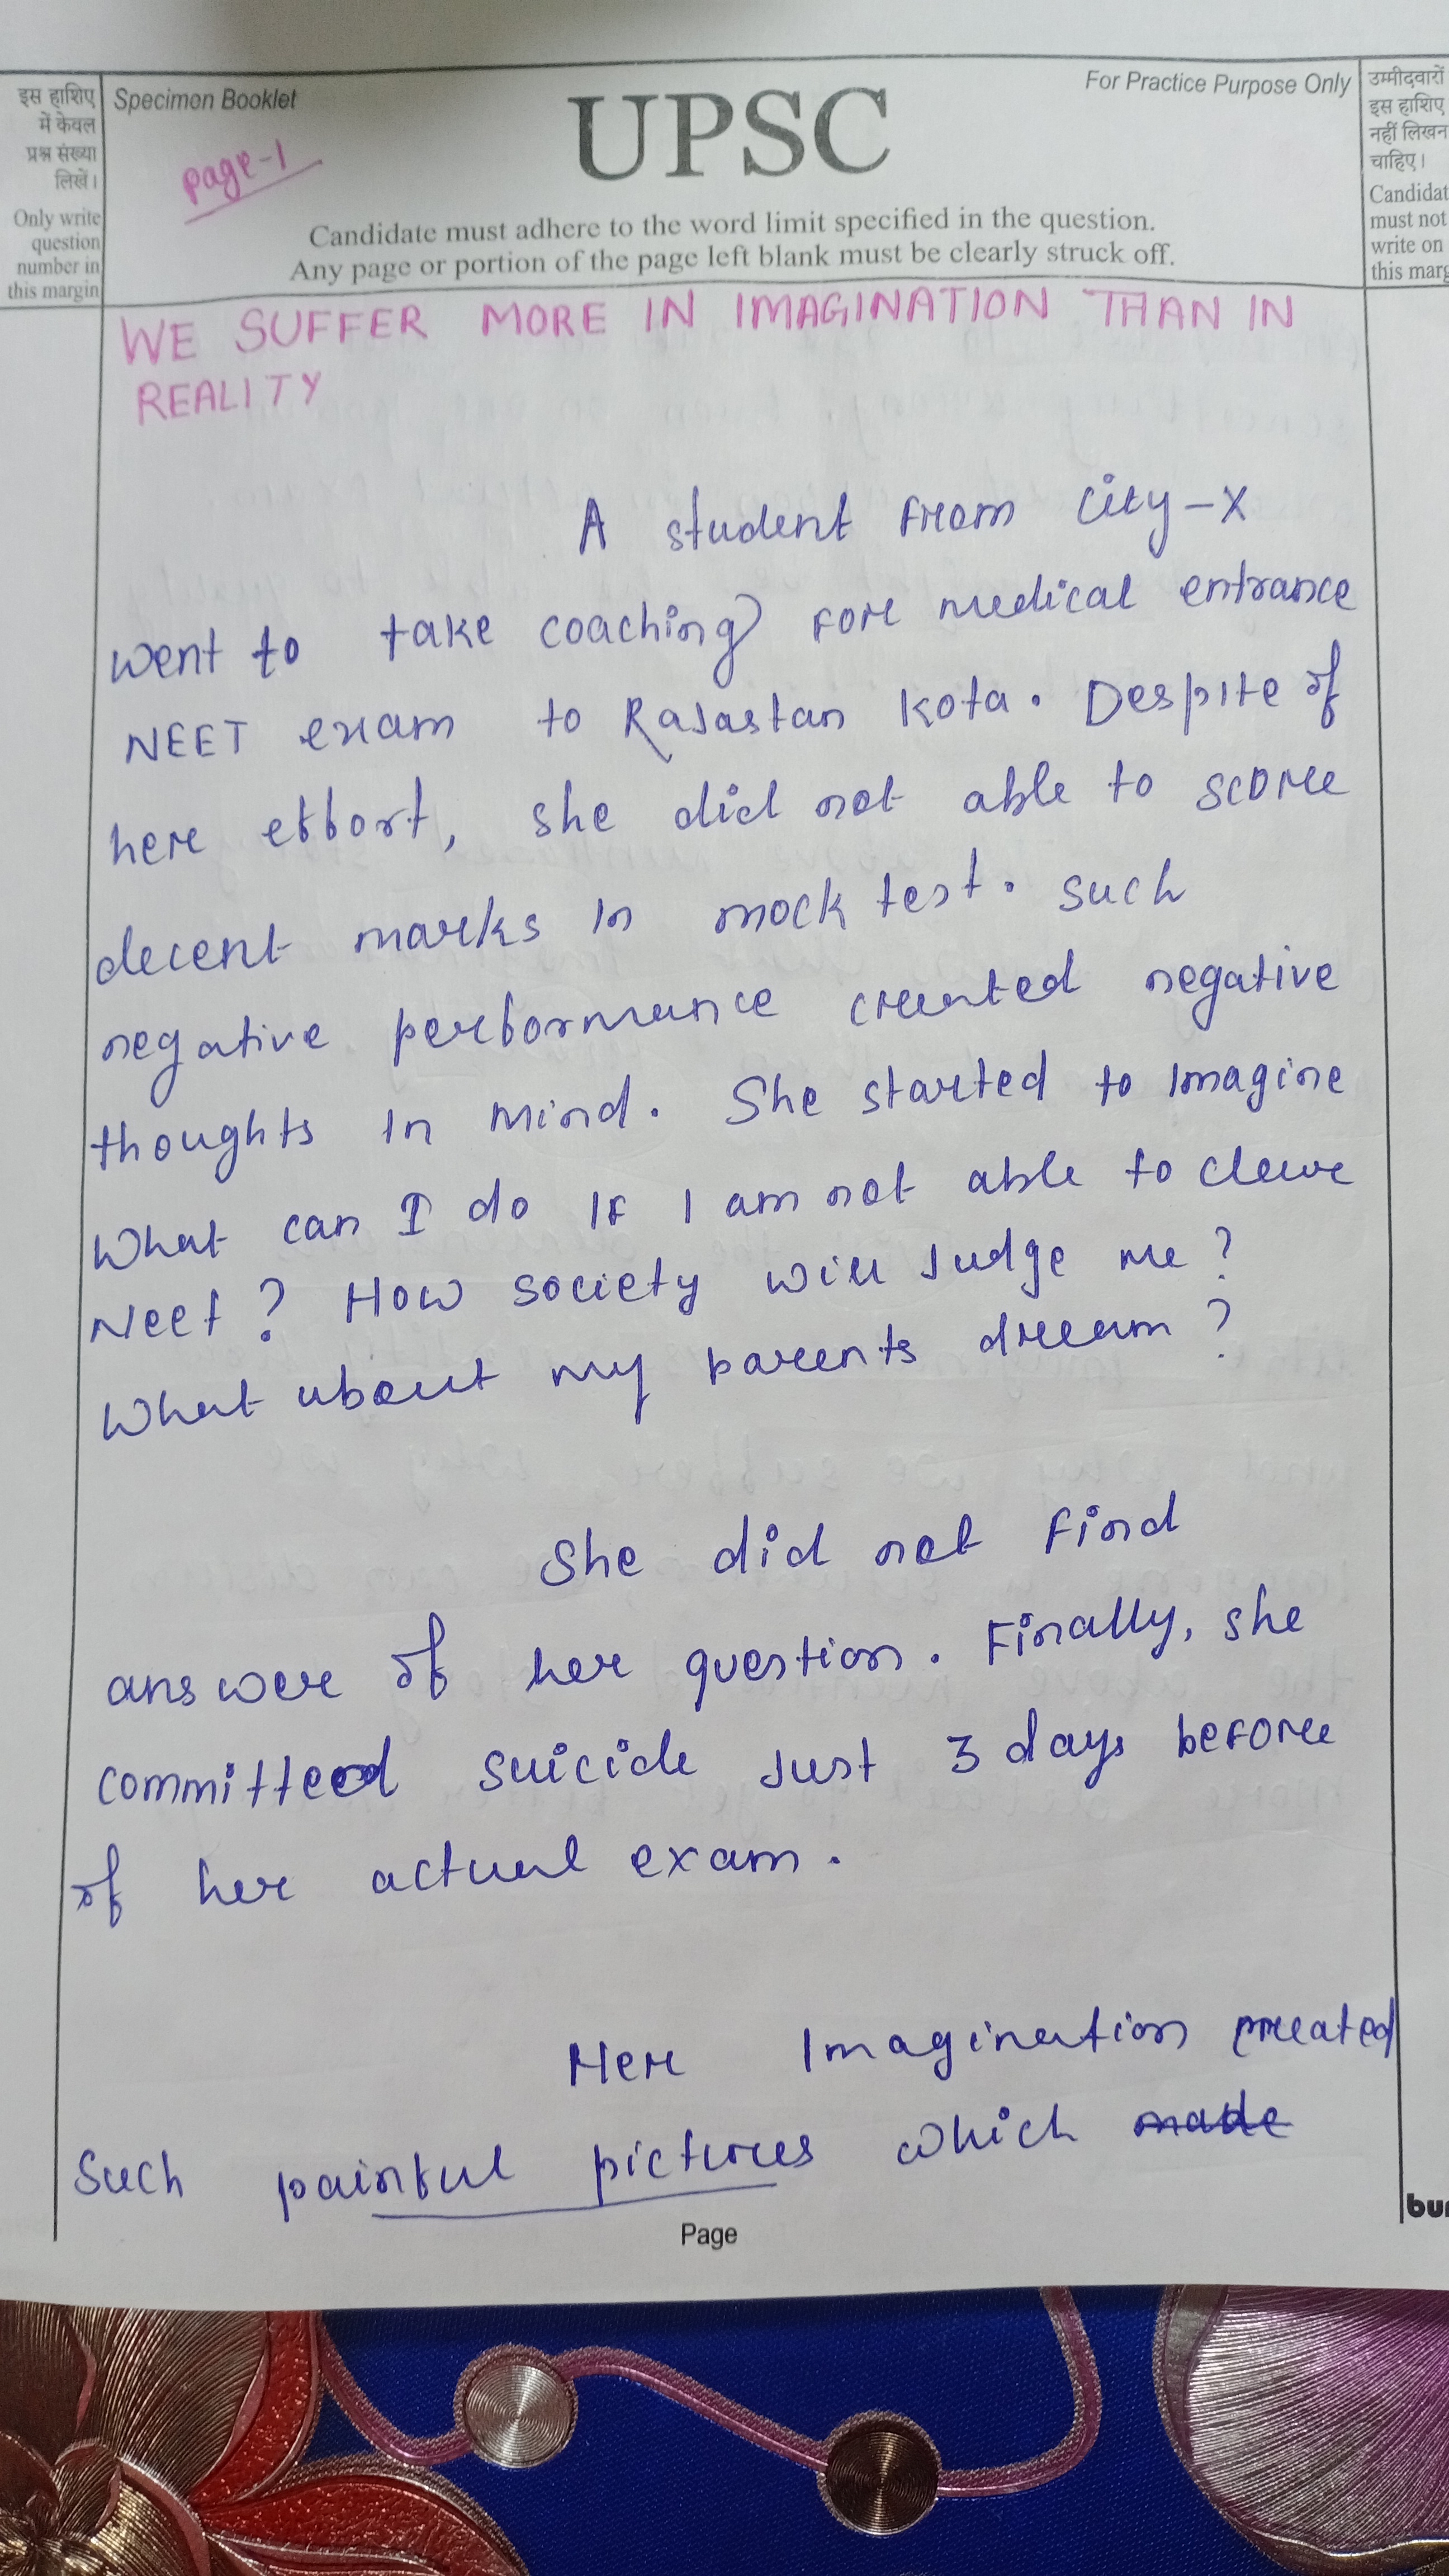 इस हाशिए
में केवल
प्रश्न संख्या
लिखें।
Only write
question
number in
this margin
Specimen Booklet
For Practice Purpose Only
page-1
UPSC
Candidate must adhere to the word limit specified in the question.
Any page or portion of the page left blank must be clearly struck off.
उम्मीदवारों
इस हाशिए
नहीं लिखन
चाहिए।
Candidat
must not
write on
this marg
WE SUFFER MORE IN IMAGINATION THAN IN
REALITY
A student from City-X
went to take coaching for medical entrance
NEET exam to Rajastan Kota. Despite of
here effort, she did not able to score
decent marks in mock test. such
negative performance created negative
thoughts in mind. She started to imagine
What can I do if I am not able to clear
Neet? How society will judge me?
What about my parents dream?
She did not find
answer of her question. Finally, she
committed suicide just 3 days before
of her actual exam.
Here Imagination created
Such painful pictures which made
Page
bu